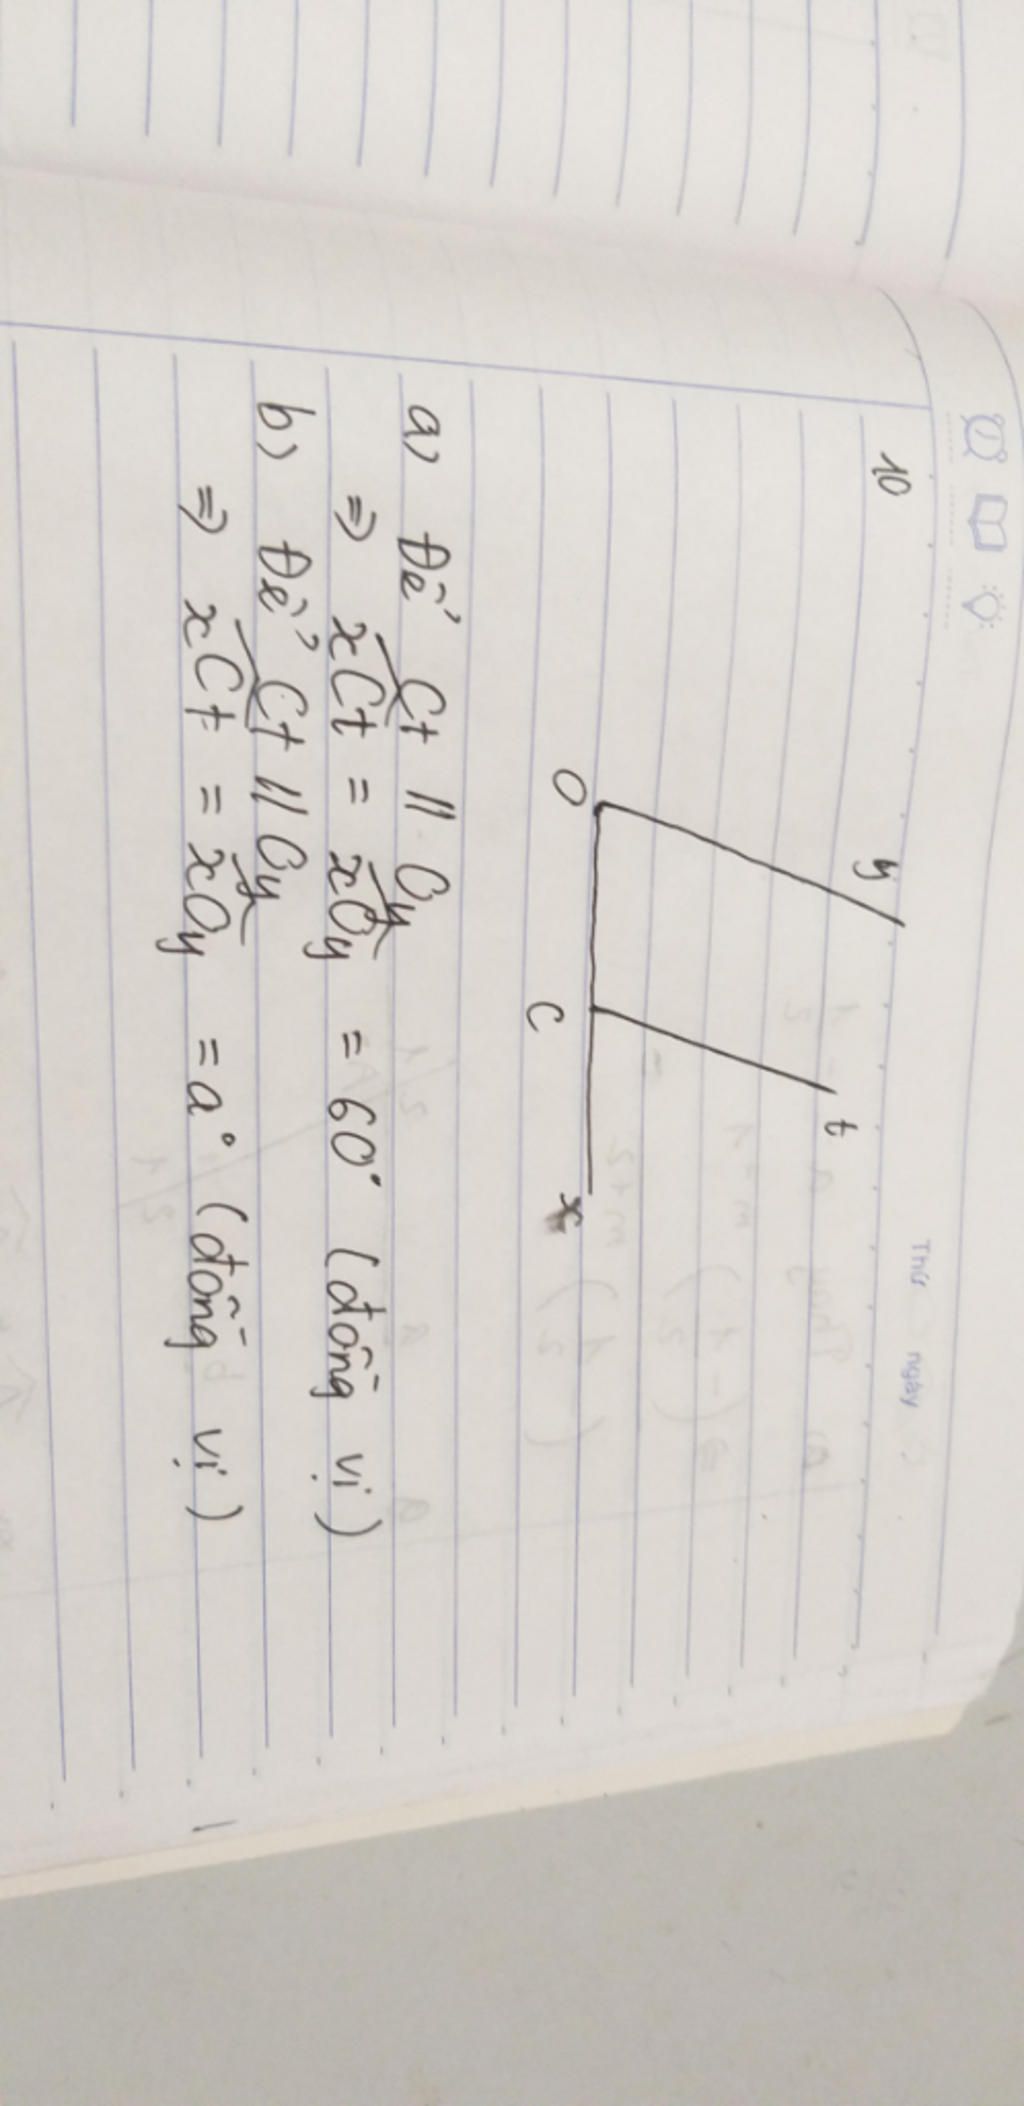 Thứ ngày
10
y
t
O
C
x
a) Để Ct // Oy
=> xCt = xOy = 60° (đồng vị)
b) Để Ct // Oy
=> xCt = xOy = a° (đồng vị)